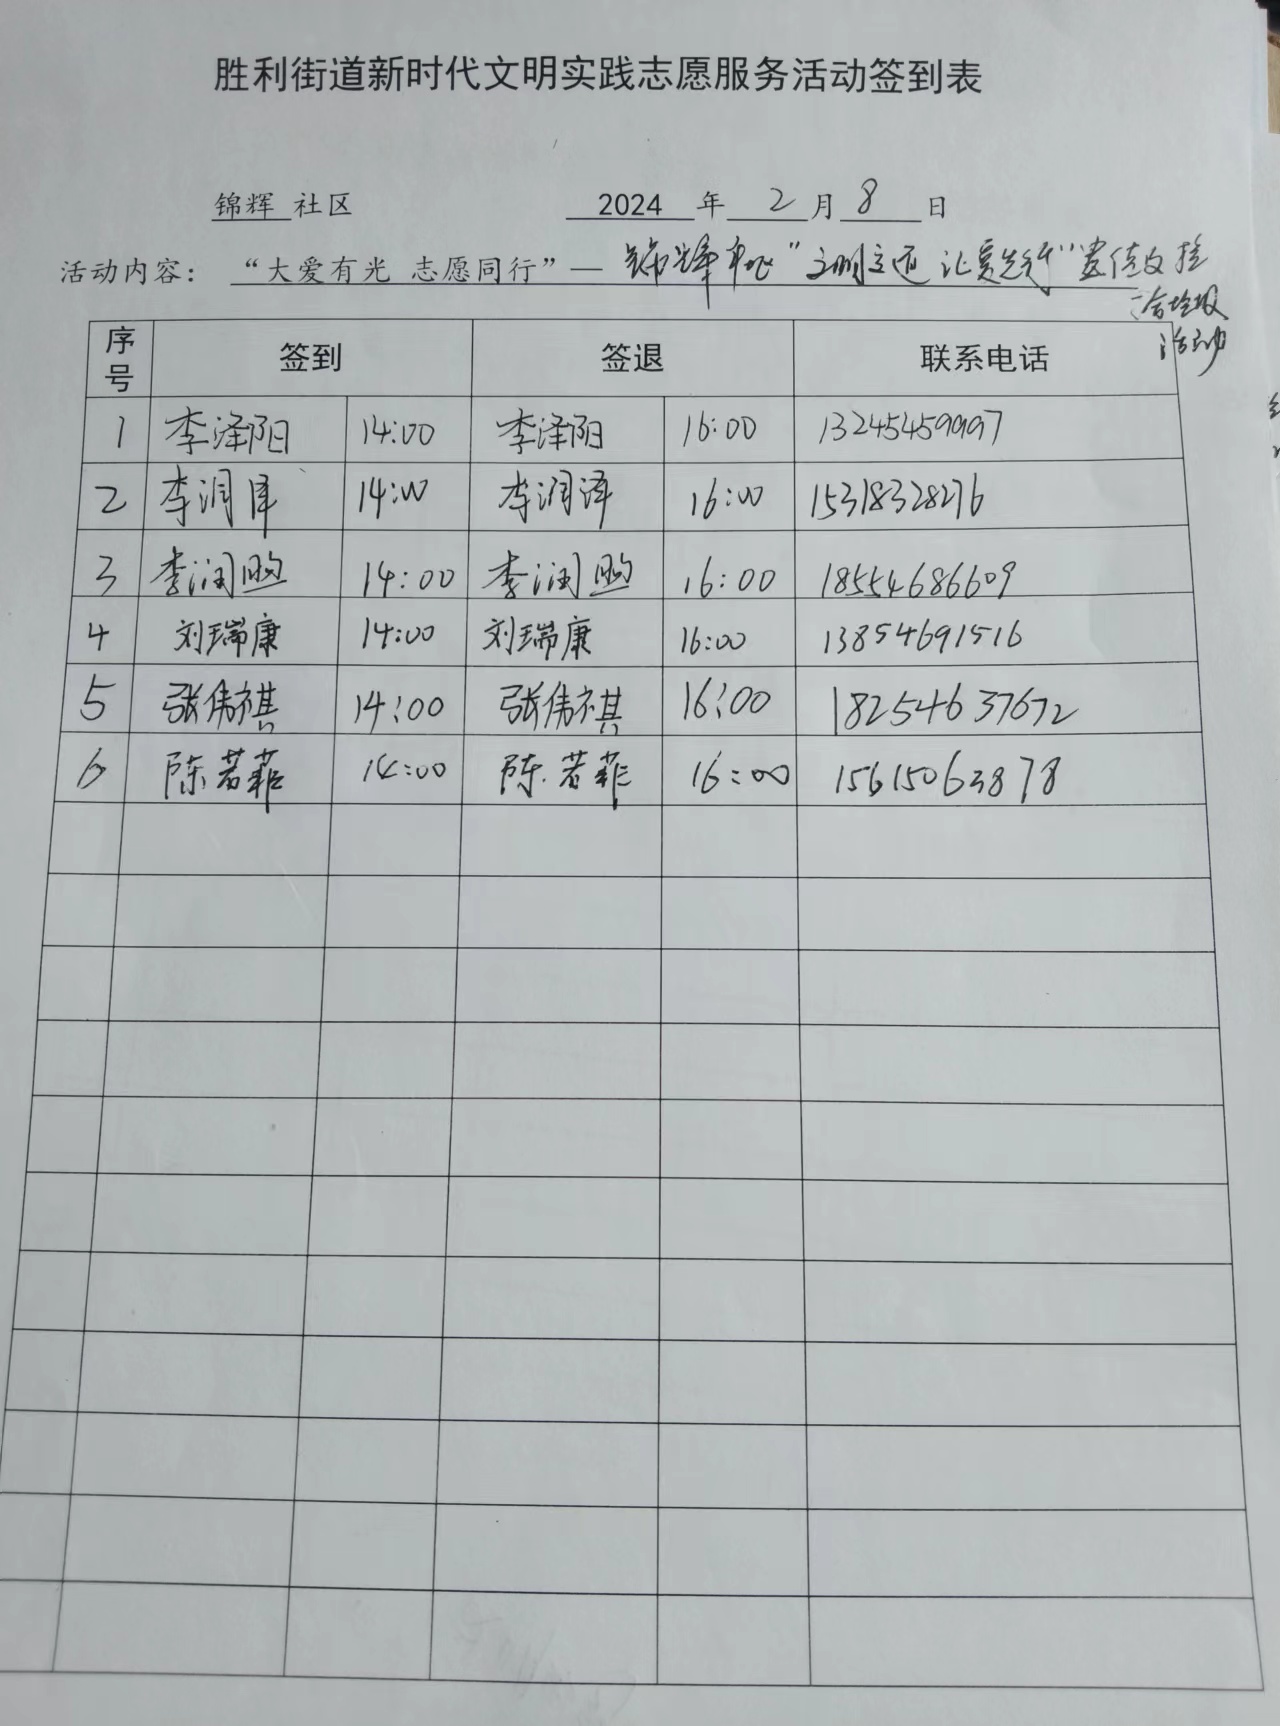 胜利街道新时代文明实践志愿服务活动签到表
锦辉 社区 2024 年 2 月 8 日
活动内容： “大爱有光 志愿同行”— “文明交通 让爱先行”
活动
序号 签到 签退 联系电话
1 李泽阳 14:00 李泽阳 16:00 13245459997
2 李润泽 14:00 李润泽 16:00 15318328276
3 李润 14:00 李润 16:00 18554686609
4 刘瑞康 14:00 刘瑞康 16:00 13854691516
5 张伟祺 14:00 张伟祺 16:00 18254637672
6 陈若菲 14:00 陈若菲 16:00 15615063878